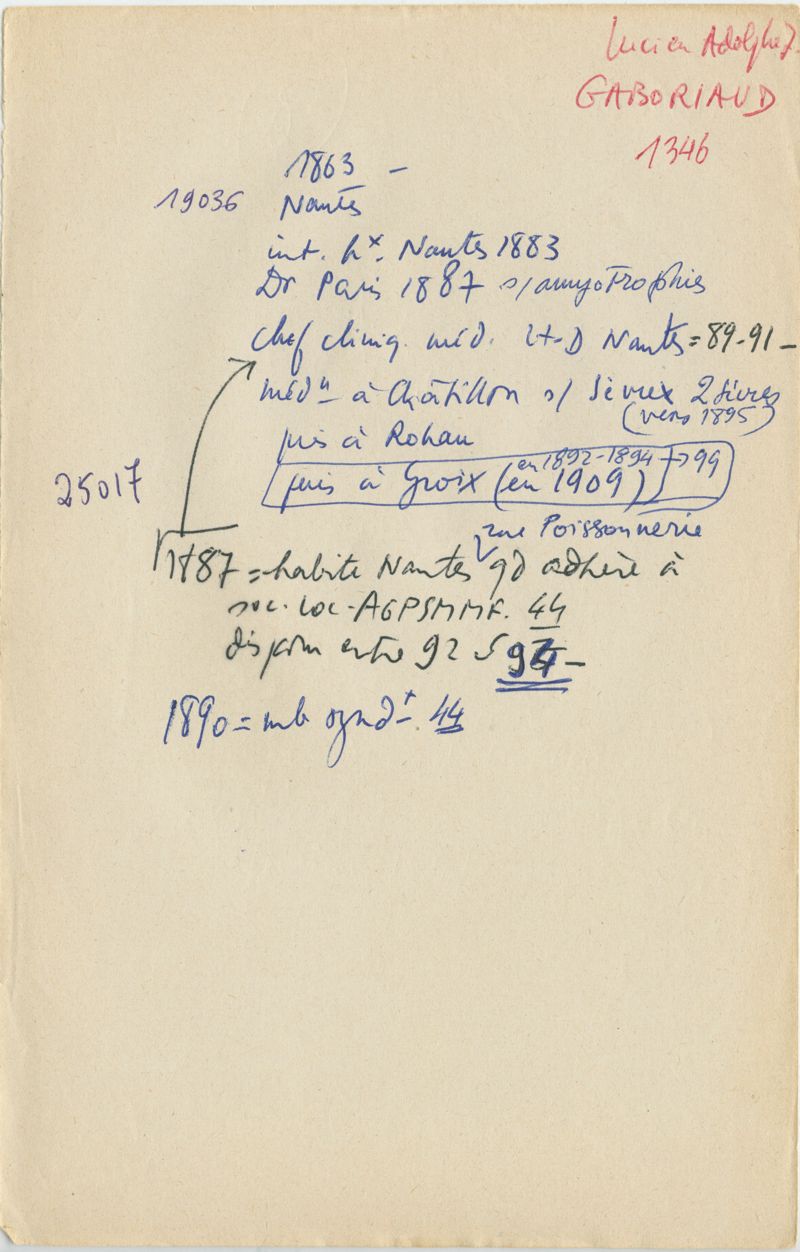 Lucien Adolphe J.
GABORIAUD
1346
1863 -
19036 Nantes
int. hx. Nantes 1883
Dr Paris 1887 s/amyotrophies
chef cliniq. méd. Ht-D Nantes = 89-91 -
médn à Châtillon s/ Sèvres 2 Sèvres
(vers 1895)
puis à Rohan
en 1892-1894 → 99
25017 puis à Groix (en 1909)
rue Poissonnerie
1887 = habite Nantes qd adhère à
soc. loc. AGPSMMF. 44
disparu entre 92 & 94 -
1890 = mb synd+ 44